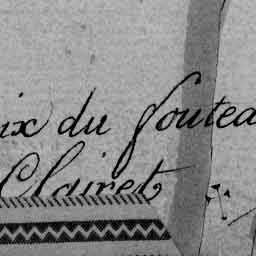 ix du foutea
Clairet